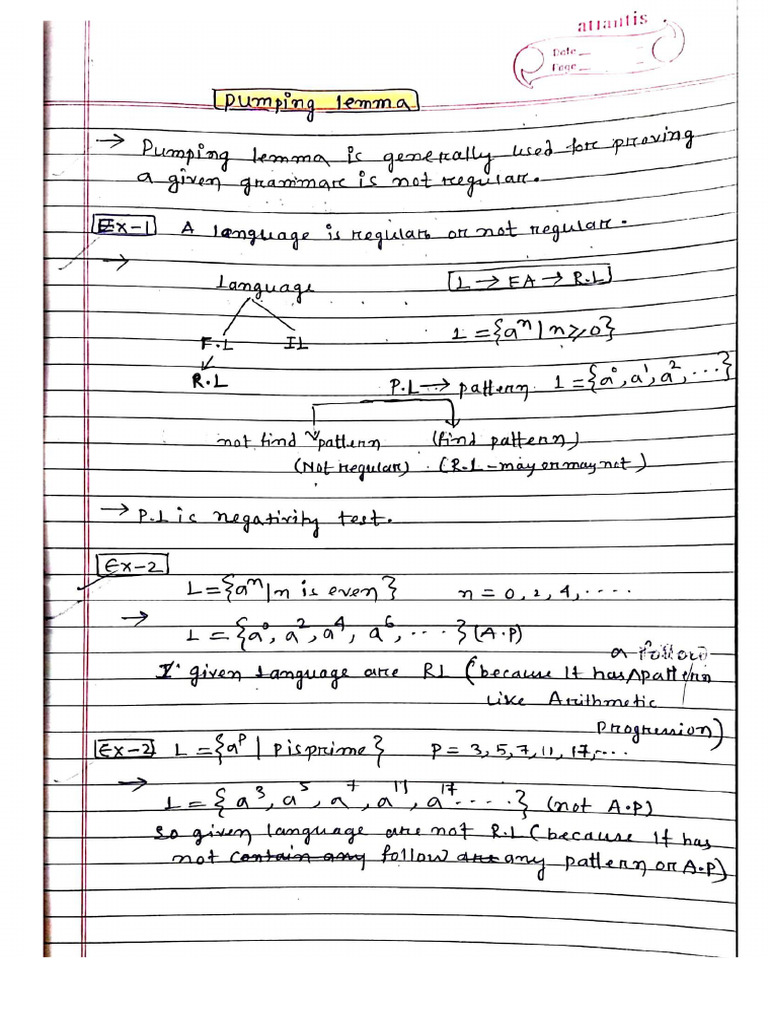 atlantis
Date
Page
Pumping lemma
→ Pumping lemma is generally used for proving
a given grammar is not regular.
Ex-1 A language is regular or not regular.
→
Language
L → FA → R.L
F.L IL
L = {aⁿ | n ≥ 0}
R.L
P.L → pattern L = {a⁰, a¹, a², ...}
not find pattern (find pattern)
(Not regular) (R.L - may or may not)
→ P.L is negativity test.
Ex-2
L = {aⁿ | n is even} n = 0, 2, 4, ....
→
L = {a⁰, a², a⁴, a⁶, ....} (A.P)
given Language are RL (because It has a follow pattern
like Arithmetic
Progression)
Ex-2 L = {aᵖ | P is prime} P = 3, 5, 7, 11, 17, ...
→
L = {a³, a⁵, a⁷, a¹¹, a¹⁷ ....} (not A.P)
so given language are not R.L (because It has
not contain any follow are any pattern or A.P)